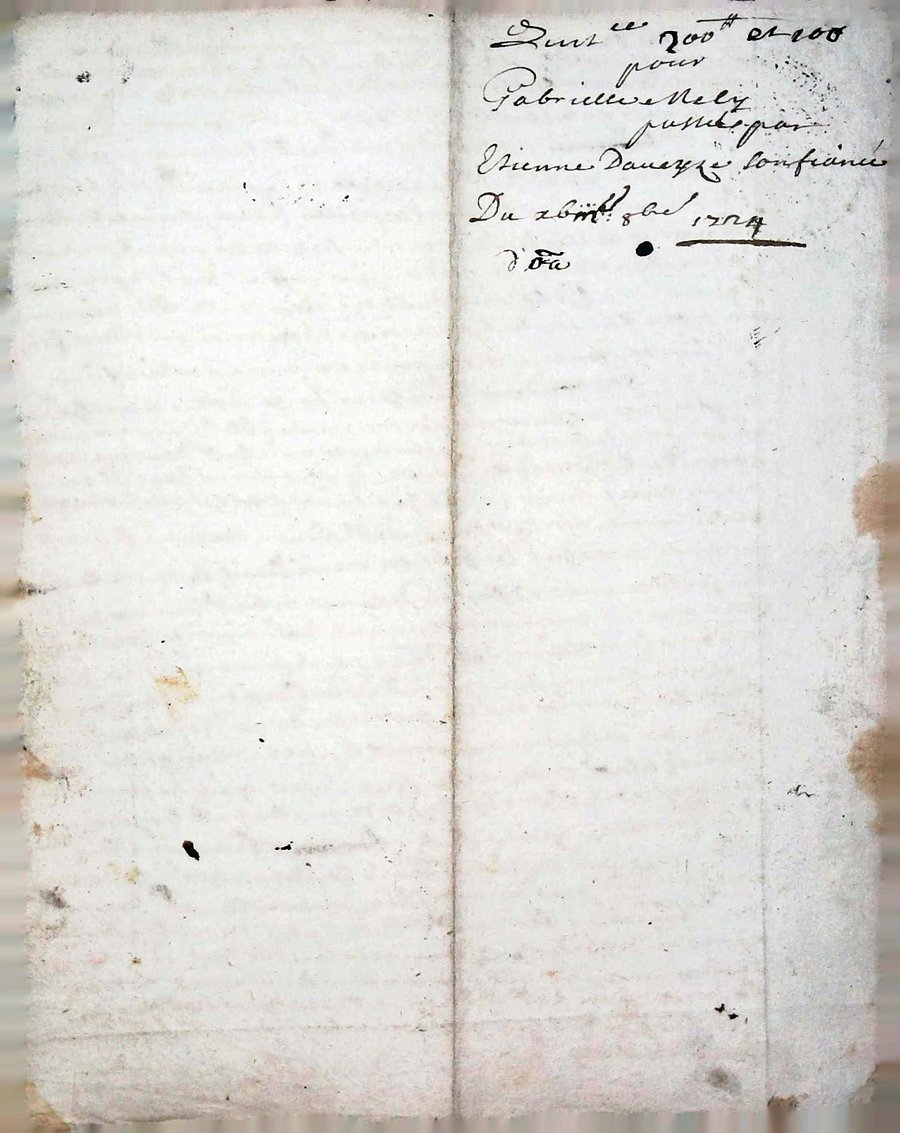 Quitce 200tt et 100
pour
Gabrielle Nely
passée par
Etienne Daveyze son fiancé
Du 8bre 1724